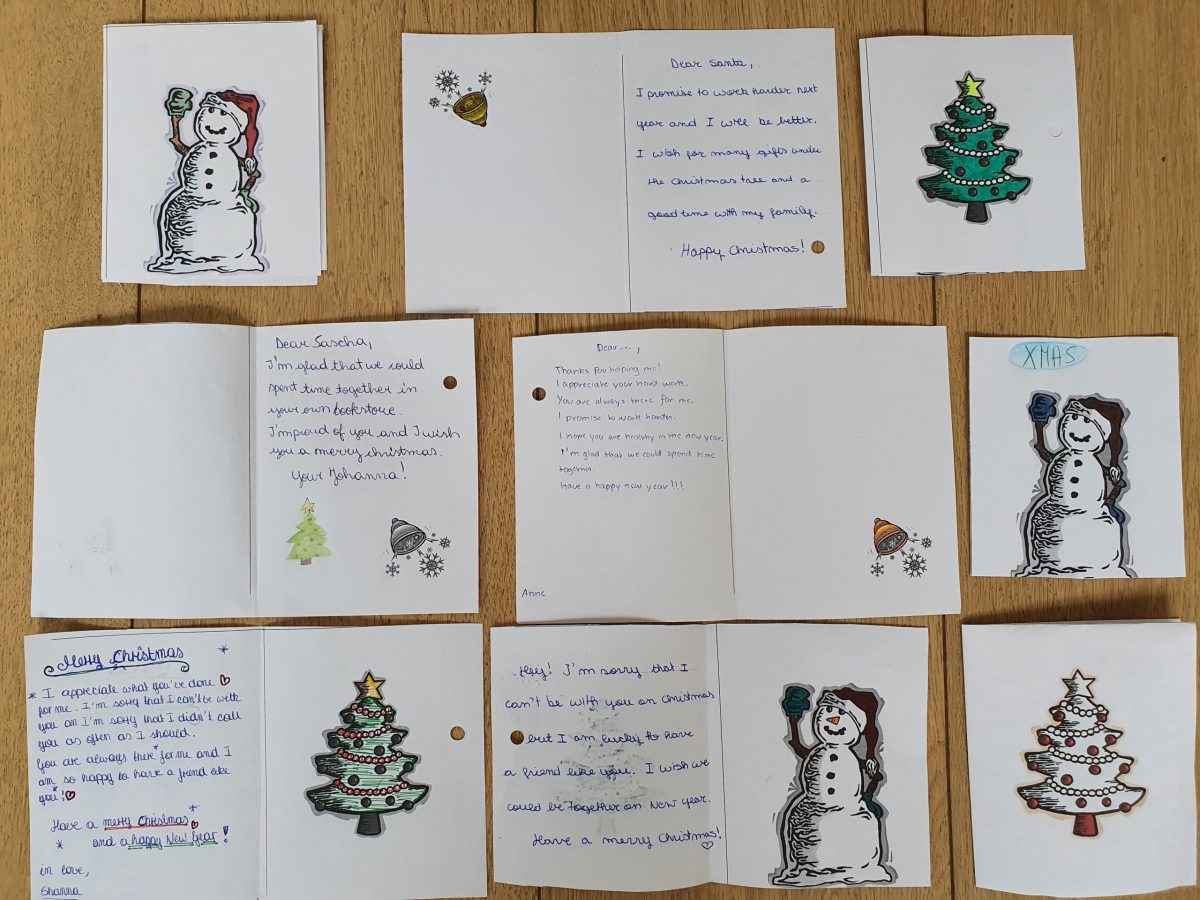 Dear Santa,
I promise to work harder next
year and I will be better.
I wish for many gifts under
the Christmas tree and a
good time with my family.
Happy Christmas!
Dear Sascha,
I'm glad that we could
spent time together in
your own bookstore.
I'm proud of you and I wish
you a merry christmas.
Your Johanna!
Dear ...,
Thanks for helping me!
I appreciate your hard work.
You are always there for me.
I promise to work harder.
I hope you are healthy in the new year.
I'm glad that we could spend time
together.
Have a happy new year!!!
Anne
XMAS
Merry Christmas
I appreciate what you've done
for me. I'm sorry that I can't be with
you an I'm sorry that I didn't call
you as often as I should.
You are always there for me and I
am so happy to have a friend like
you!
Have a merry christmas
and a happy New Year!
in love,
Shanna
Hey! I'm sorry that I
can't be with you on christmas
but I am lucky to have
a friend like you. I wish we
could be together on New year.
Have a merry Christmas!